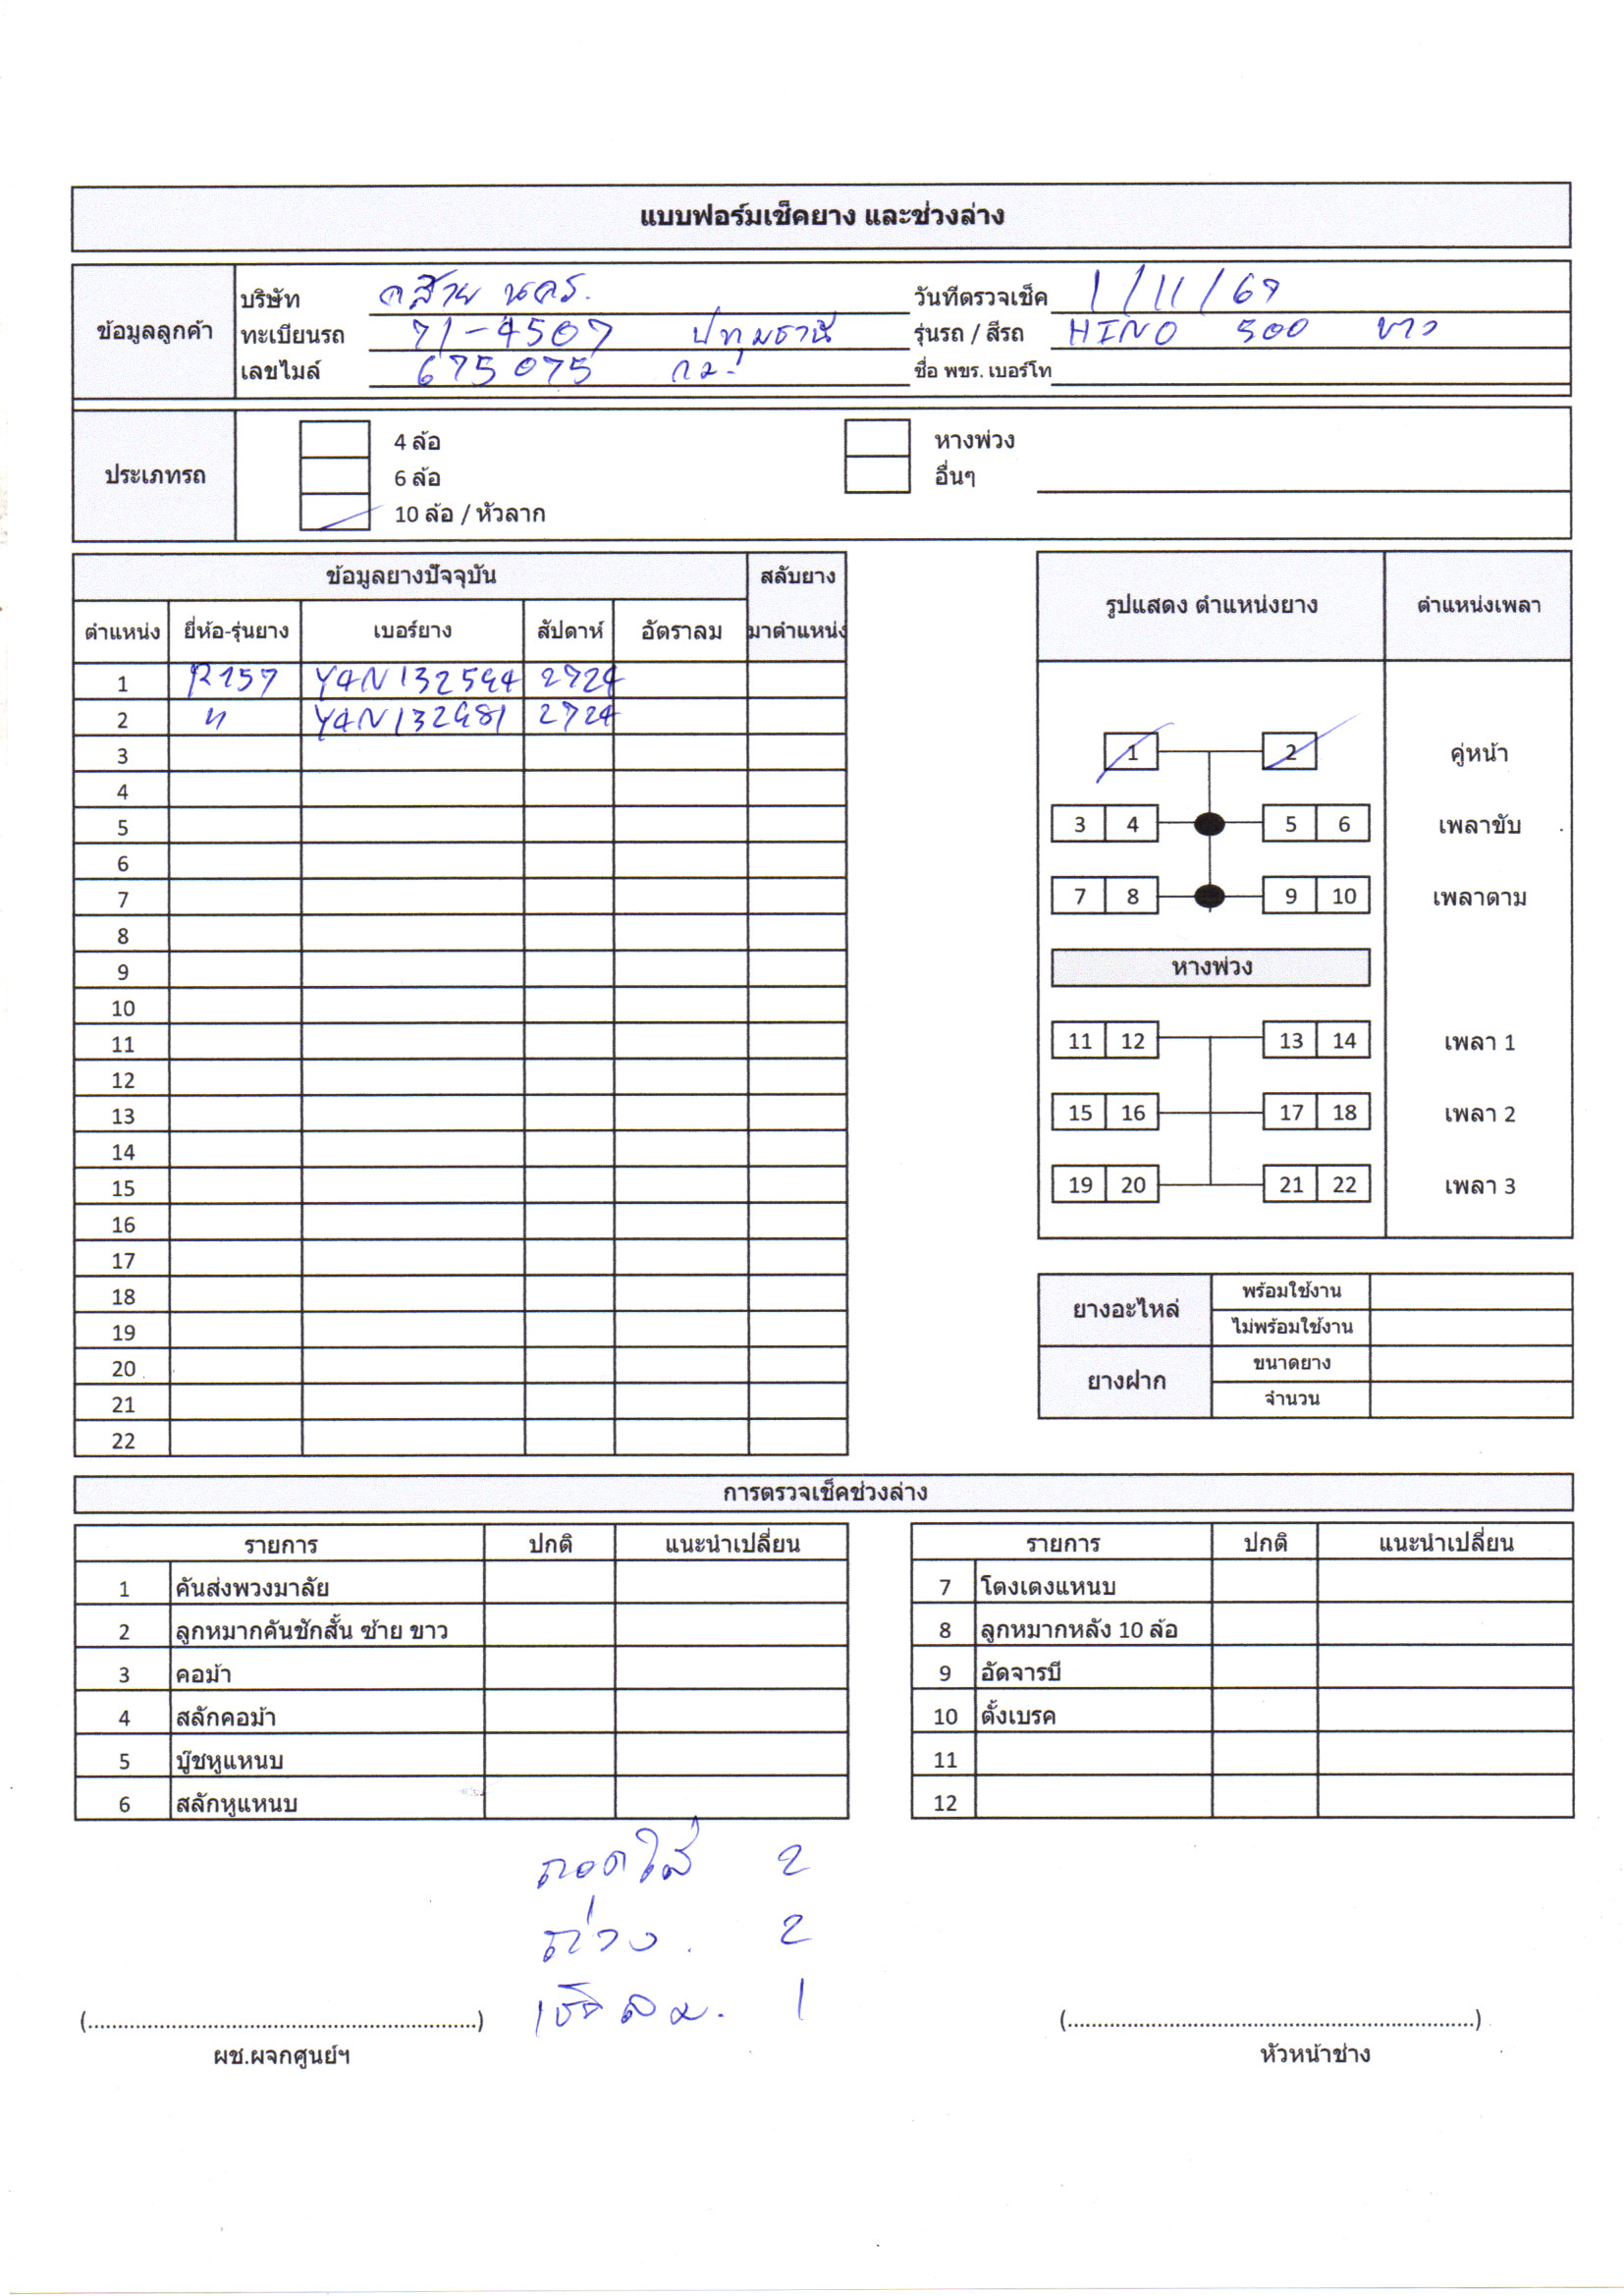 แบบฟอร์มเช็คยาง และช่วงล่าง
ข้อมูลลูกค้า
บริษัท นคร.
วันที่ตรวจเช็ค 1/11/67
ทะเบียนรถ 71-4507 ปทุมธานี
รุ่นรถ / สีรถ HINO 500 ขาว
เลขไมล์ 675075 กม.
ชื่อ พขร. เบอร์โท
ประเภทรถ
4 ล้อ
หางพ่วง
6 ล้อ
อื่นๆ
10 ล้อ / หัวลาก
ข้อมูลยางปัจจุบัน สลับยาง
ตำแหน่ง ยี่ห้อ-รุ่นยาง เบอร์ยาง สัปดาห์ อัตราลม มาตำแหน่ง
1 R157 Y4N132594 2724
2 " Y4N132481 2724
3
4
5
6
7
8
9
10
11
12
13
14
15
16
17
18
19
20
21
22
รูปแสดง ตำแหน่งยาง ตำแหน่งเพลา
1 2 คู่หน้า
3 4 5 6 เพลาขับ
7 8 9 10 เพลาตาม
หางพ่วง
11 12 13 14 เพลา 1
15 16 17 18 เพลา 2
19 20 21 22 เพลา 3
ยางอะไหล่ พร้อมใช้งาน
ไม่พร้อมใช้งาน
ยางฝาก ขนาดยาง
จำนวน
การตรวจเช็คช่วงล่าง
รายการ ปกติ แนะนำเปลี่ยน
1 คันส่งพวงมาลัย
2 ลูกหมากคันชักสั้น ซ้าย ขาว
3 คอม้า
4 สลักคอม้า
5 บู๊ชหูแหนบ
6 สลักหูแหนบ
รายการ ปกติ แนะนำเปลี่ยน
7 โตงเตงแหนบ
8 ลูกหมากหลัง 10 ล้อ
9 อัดจารบี
10 ตั้งเบรค
11
12
ถอดใส่ 2
ถ่วง. 2
เช็คลม. 1
(...................................................................)
ผช.ผจกศูนย์ฯ
(......................................................................)
หัวหน้าช่าง